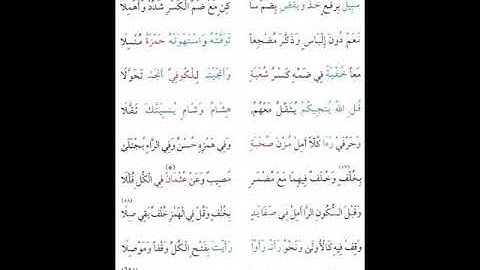 سَبِيلَ بِرَفْعٍ خُذْ وَيَقْضِ بِضَمِّ سَا كِنٍ مَعَ ضَمِّ الْكَسْرِ شَدِّدْ وَأَهْمِلَا
نَعَمْ دُونَ إِلْبَاسٍ وَذَكَّرَ مُضْجِعًا تَوَفَّتْهُ وَاسْتَهْوَتْهُ حَمْزَةُ مُنْسِلَا
مَعًا خُفْيَةً فِي ضَمِّهِ كَسْرُ شُعْبَةٍ وَأَنْجَيْتَ لِلْكُوفِيِّ أَنْجَى تَحَوَّلَا
قُلِ اللهُ يُنْجِيكُمْ يُثَقِّلُ مَعْهُمُ هِشَامٌ وَشَامٍ يُنْسِيَنَّكَ ثَقَّلَا
وَحَرْفَيْ رَءَا كُلًّا أَمِلْ مُزْنَ صُحْبَةٍ وَفِي هَمْزِهِ حُسْنٌ وَفِي الرَّاءِ يُجْتَلَى
بِخُلْفٍ وَخُلْفٌ فِيهِمَا مَعَ مُضْمَرٍ مُصِيبٌ وَعَنْ عُثْمَانَ فِي الْكُلِّ قَلِّلَا
وَقَبْلَ السُّكُونِ الرَّا أَمِلْ فِي صَفَا يَدٍ بِخُلْفٍ وَقُلْ فِي الْهَمْزِ خُلْفٌ يَقِي صِلَا
وَقِفْ فِيهِ كَالْأُولَى وَنَحْوُ رَأَتْ رَأَوْا رَأَيْتَ بِفَتْحِ الْكُلِّ وَقْفًا وَمَوْصِلَا